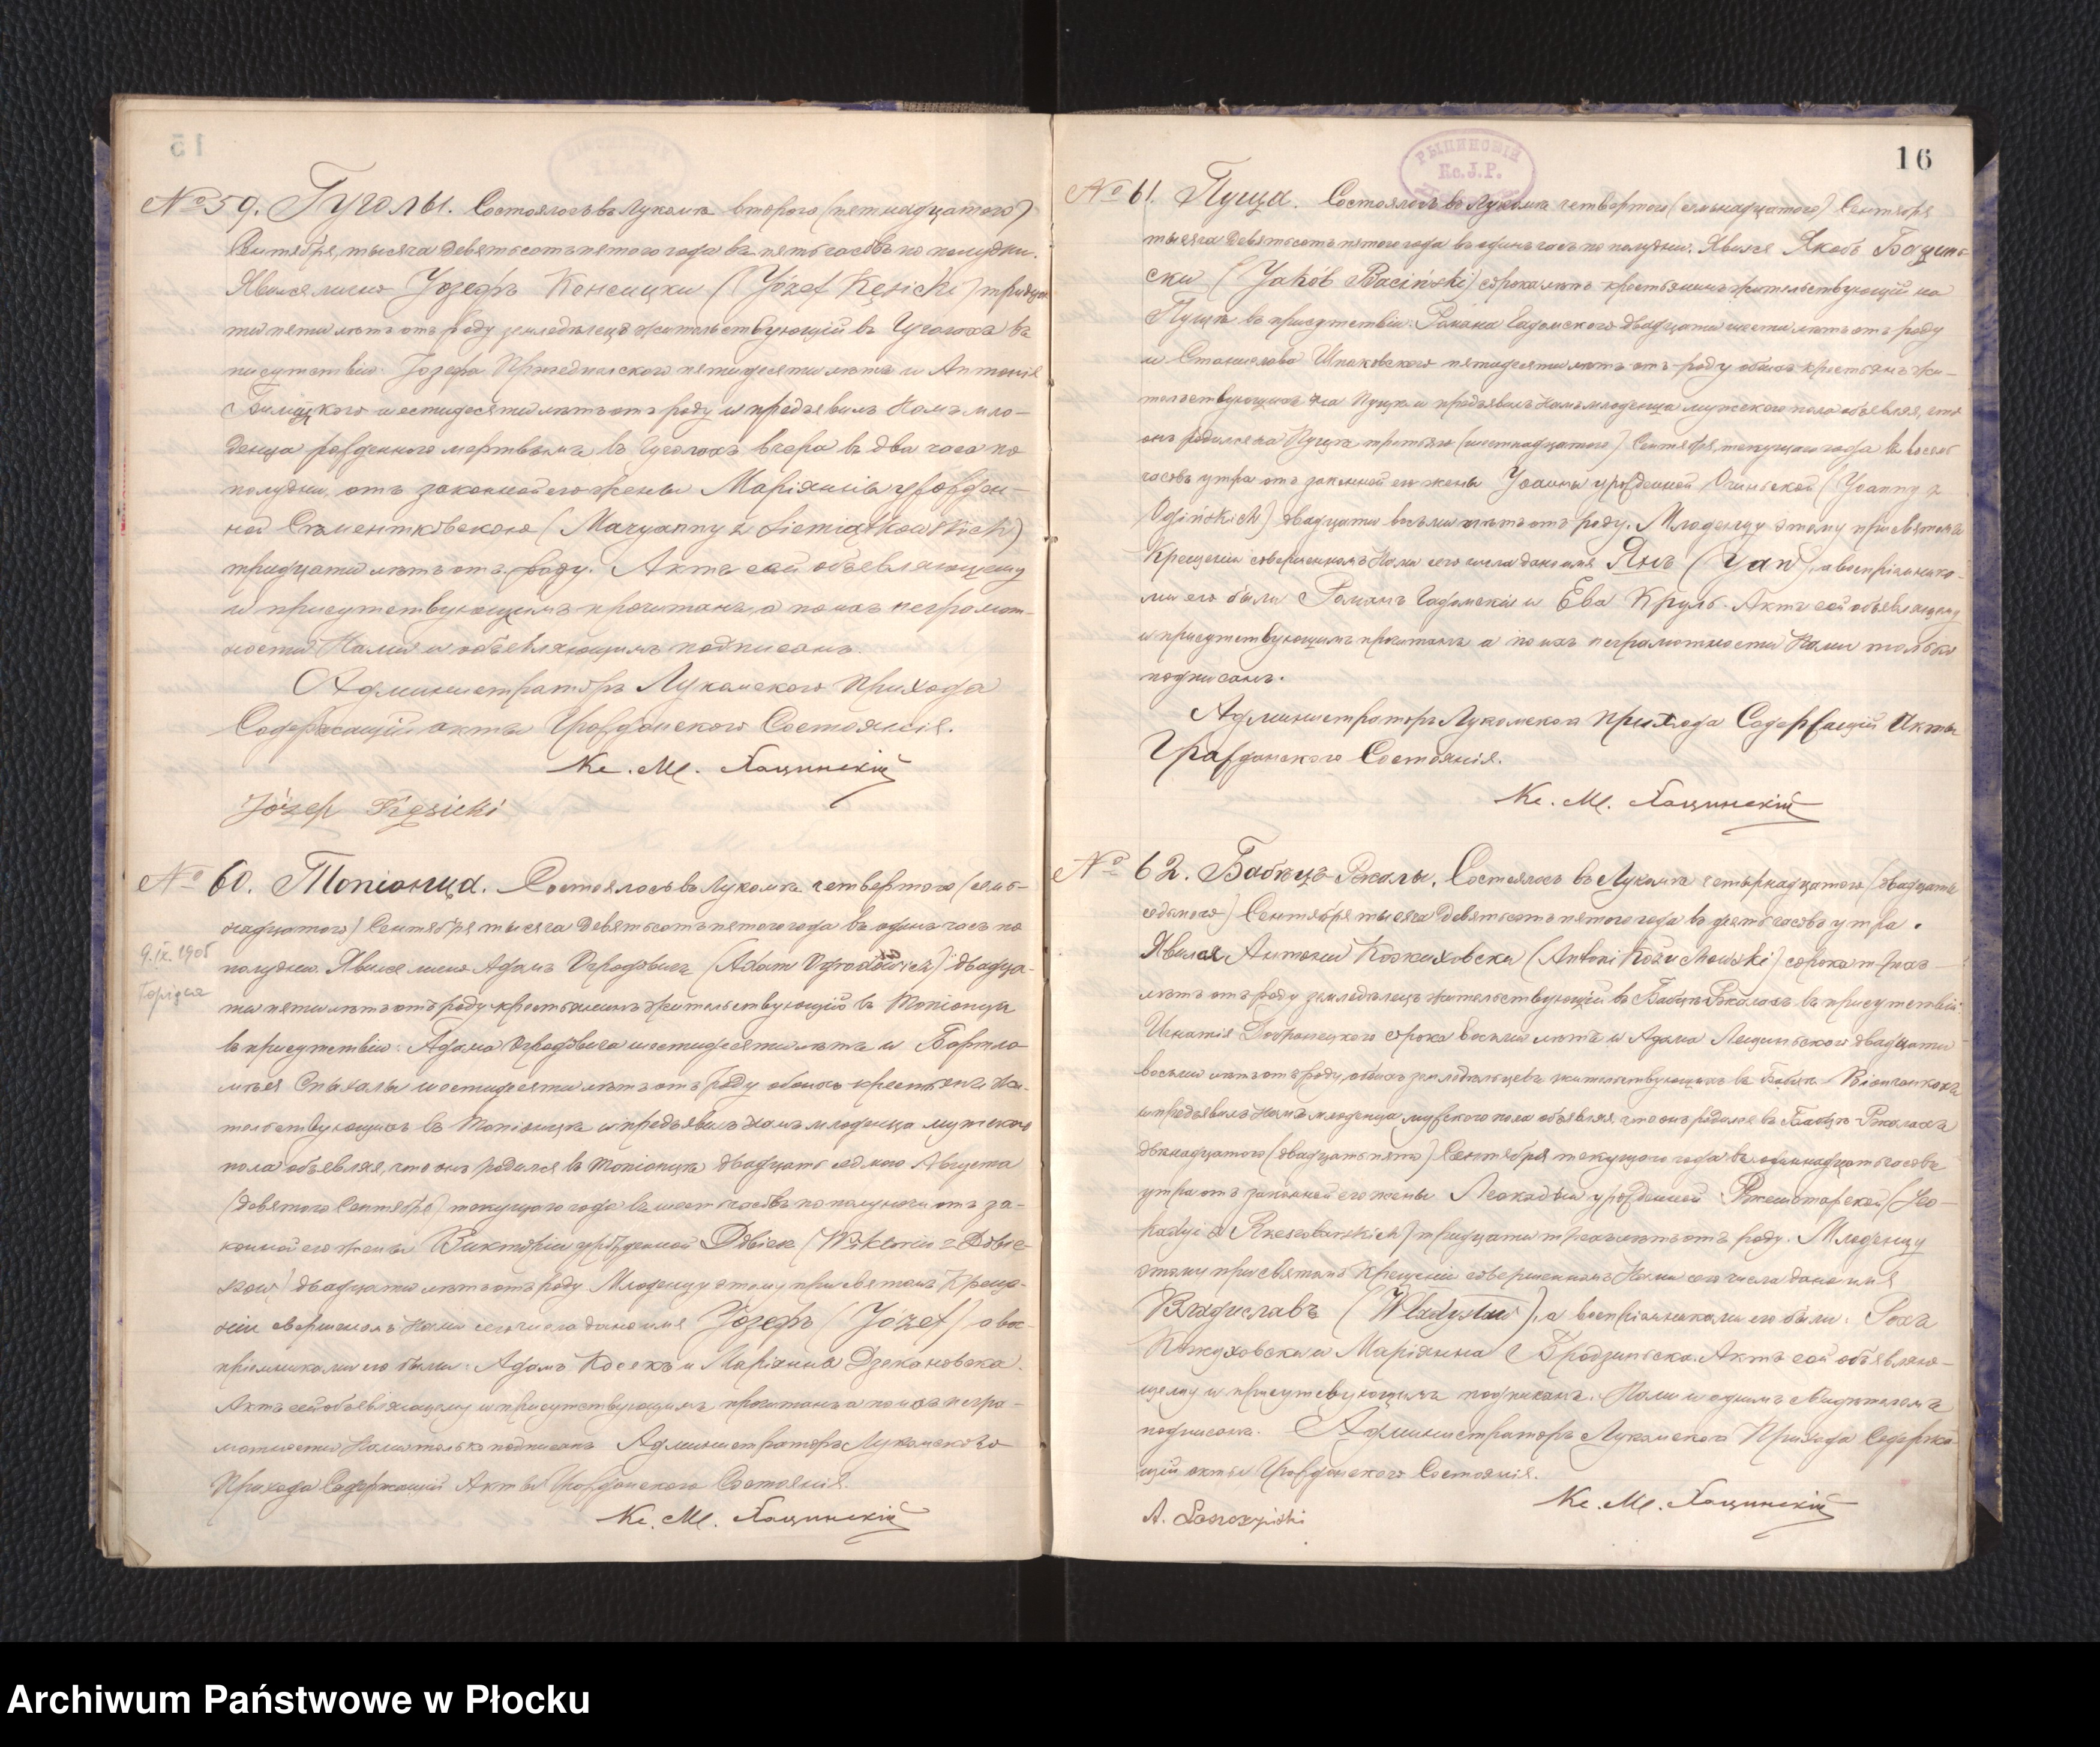 № 59. Гуголы. Состоялось въ Лукомѣ второго (пятнадцатого)
Сентября, тысяча девятьсотъ пятого года въ пять часовъ по полудни.
Явился лично Іозефъ Кенсицки (Józef Kęsicki) тридцати
пяти лѣтъ отъ роду земледѣлецъ жительствующій въ Гуголахъ въ
присутствіи Іозефа пятидесяти лѣтъ и Антонія
шестидесяти лѣтъ отъ роду и предъявилъ Намъ мла-
денца рожденного мертвымъ въ Гуголахъ вчера въ два часа по
полудни, отъ законной его жены Маріянны урожден-
ной Сѣментковскою (Maryanny z Siemiątkowskich)
тридцати лѣтъ отъ роду. Актъ сей объявляющему
и присутствующимъ прочитанъ, а по ихъ неграмот-
ности Нами и объявляющимъ подписанъ.
Администраторъ Лукомского Прихода
Содержащій акты Гражданского Состоянія.
Кс. М.
Józef Kęsicki
№ 60. Топіонца. Состоялось въ Лукомѣ четвертого (сем-
надцатого) Сентября тысяча девятьсотъ пятого года въ одинъ часъ по
9.IX.1905
полудни. Явился лично Адамъ Огродовичъ (Adam Ogrodowicz) двадца-
ти пяти лѣтъ отъ роду крестьянинъ жительствующій въ Топіонцѣ
въ присутствіи: Адама Огродовича шестидесяти лѣтъ и Бартло-
мѣя Спыхалы шестидесяти лѣтъ отъ роду обоихъ крестьянъ жи-
тельствующихъ въ Топіонцѣ и предъявилъ Намъ младенца мужского
пола объявляя, что онъ родился въ Топіонцѣ двадцать седмого Августа
(девятого Сентября) текущого года въ шесть часовъ по полуночи отъ за-
конной его жены Викторіи урожденной (Wiktorii z
) двадцати лѣтъ отъ роду. Младенцу этому при святомъ Креще-
ніи совершеномъ Нами сего числа дано имя Іозефъ (Józef) а вос-
пріемниками его были: Адамъ Косекъ и Маріянна Дзекановска.
Актъ сей объявляющему и присутствующимъ прочитанъ а по ихъ негра-
мотности Нами только подписанъ Администраторъ Лукомского
Прихода Содержащій Акты Гражданского Состоянія.
Кс. М.
РЫПИНСКІЙ
16
№ 61. Пуща. Состоялось въ Лукомѣ четвертого (семьнадцатого) Сентября
тысяча девятьсотъ пятого года въ одинъ часъ по полудни. Явился Якобъ Бацинь-
ски (Jakób Baciński) сорока лѣтъ крестьянинъ жительствующій на
Пущѣ въ присутствіи: Романа Гадомского двадцати шести лѣтъ отъ роду
и Станислава пятидесяти лѣтъ отъ роду обоихъ крестьянъ жи-
тельствующихъ на Пущѣ и предъявилъ Намъ младенца мужеского пола объявляя, что
онъ родился на Пущѣ третьяго (шестнадцатого) Сентября, текущаго года въ восемь
часовъ утра отъ законной его жены Іоанны урожденной Огиньской (Joanny z
Ogińskich) двадцати восьми лѣтъ отъ роду. Младенцу этому при святомъ
Крещеніи совершенномъ Нами сего числа дано имя Янъ (Jan), а воспріемника-
ми его были Романъ Гадомскій и Ева Круль. Актъ сей объявляющему
и присутствующимъ прочитанъ а по ихъ неграмотности Нами только
подписанъ.
Администраторъ Лукомского Прихода Содержащій Акты
Гражданского Состоянія.
Кс. М.
№ 62. Бабецъ-Ржалы. Состоялось въ Лукомѣ четырнадцатого (двадцать
седьмого) Сентября тысяча девятьсотъ пятого года въ десять часовъ утра.
Явился Антоній Кожуховски (Antoni Kożuchowski) сорока трехъ
лѣтъ отъ роду земледѣлецъ жительствующій въ Бабцѣ Ржалахъ въ присутствіи
Игнатія сорока восьми лѣтъ и Адама двадцати
восьми лѣтъ отъ роду, обоихъ земледѣльцевъ жительствующихъ въ Бабцѣ-
и предъявилъ Намъ младенца мужского пола объявляя, что онъ родился въ Бабцѣ-Ржалахъ
двенадцатого (двадцать пятого) Сентября текущого года въ одиннадцать часовъ
утра отъ законной его жены Леокадіи урожденной (Leo-
kadyi z ) тридцати трехъ лѣтъ отъ роду. Младенцу
этому при святомъ Крещеніи совершенномъ Нами сего числа дано имя
Владиславъ (Władysław), а воспріемниками его были: Рохъ
Кожуховски и Маріянна Актъ сей объявляю-
щему и присутствующимъ прочитанъ. Нами и однимъ свидѣтелемъ
подписанъ. Администраторъ Лукомского Прихода Содержа-
щій акты Гражданского Состоянія.
Кс. М.
A.
Archiwum Państwowe w Płocku